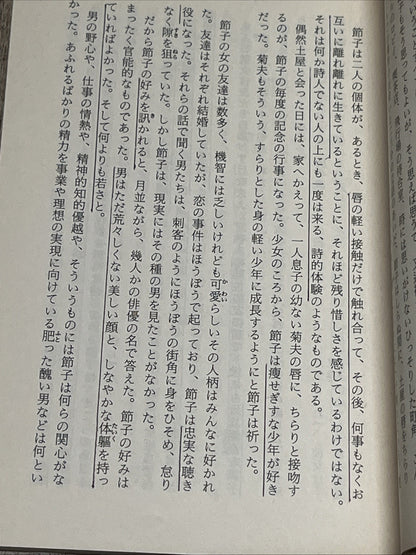 節子は二人の個体が、あるとき、唇の軽い接触だけで触れ合って、その後、何事もなくお
互いに離れ離れに生きているということに、それほど残り惜しさを感じているわけではない。
それは何か詩人でない人の上にも一度は来る、詩的体験のようなものである。
偶然土屋と会った日には、家へかえって、一人息子の幼ない菊夫の唇に、ちらりと接吻す
るのが、節子の毎度の記念の行事になった。少女のころから、節子は痩せぎすな少年が好き
だった。菊夫もそういう、すらりとした身の軽い少年に成長するようにと節子は祈った。
節子の女の友達は数多く、機智には乏しいけれども可愛らしいその人柄はみんなに好かれ
た。友達はそれぞれ結婚していたが、恋の事件はほうぼうで起っており、節子は忠実な聴き
役になった。それらの話で聞く男たちは、刺客のようにほうぼうの街角に身をひそめ、怠り
なく隙を狙っていた。しかし節子は、現実にはその種の男を見たことがなかった。
だから節子の好みを訊かれると、月並ながら、幾人かの俳優の名で答えた。節子の好みは
まったく官能的なものであった。男はただ荒々しくない美しい顔と、しなやかな体軀を持っ
ていればよかった。そして何よりも若さと。
男の野心や、仕事の情熱や、精神的知的優越や、そういうものには節子は何らの関心がな
かった。あふれるばかりの精力を事業や理想の実現に向けている肥った醜い男などは何とい